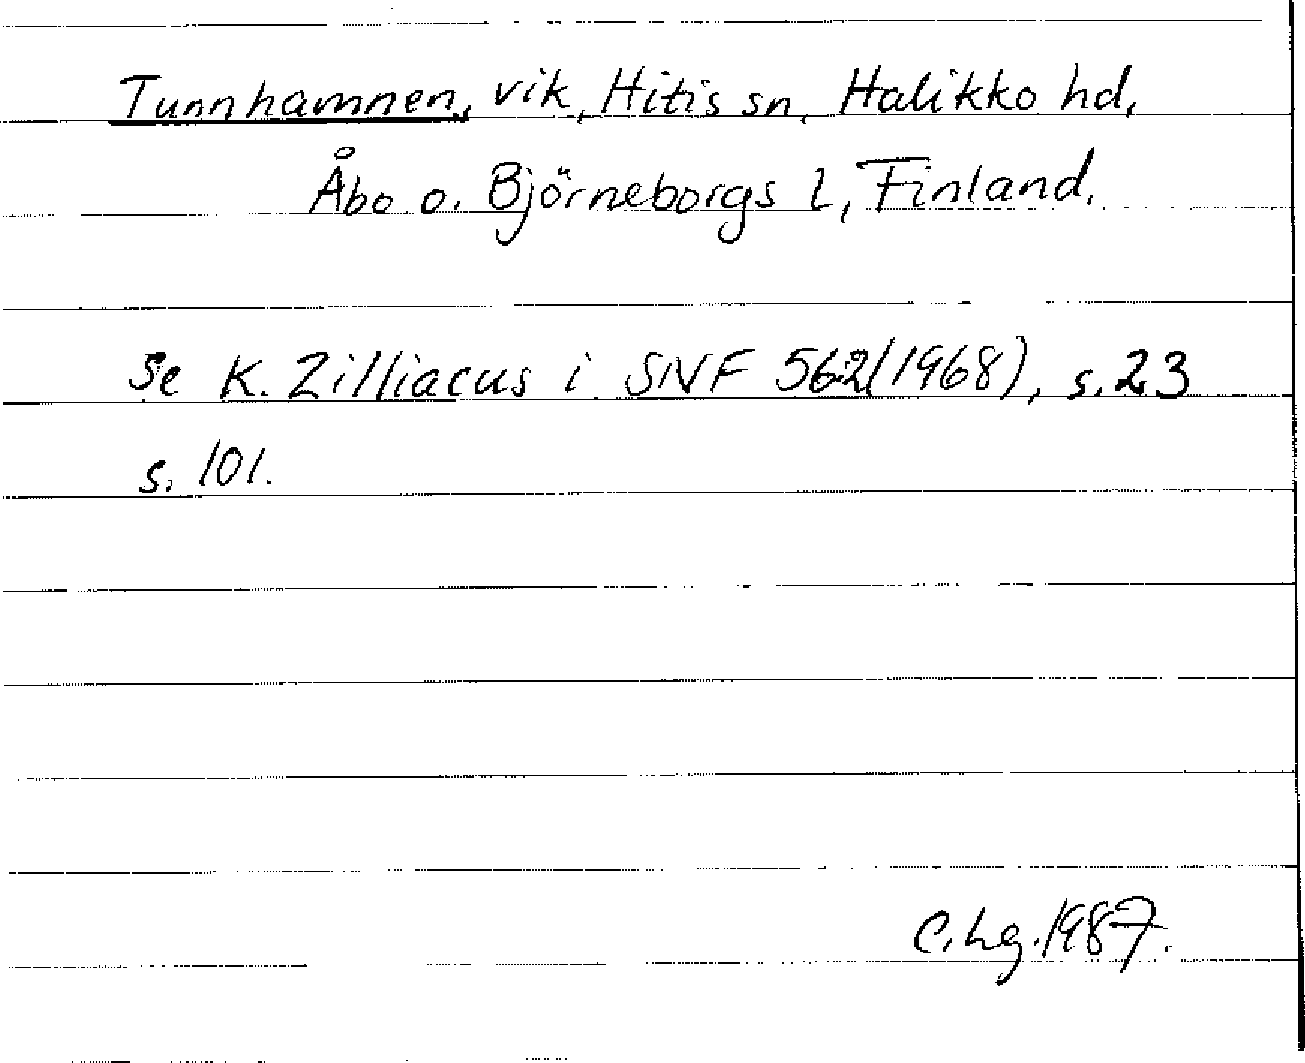 Tunnhamnen, vik, Hitis sn, Halikko hd,
Åbo o. Björneborgs l, Finland.
Se K. Zilliacus i SNF 562(1968), s. 23
s. 101.
C.Lg. 1987.